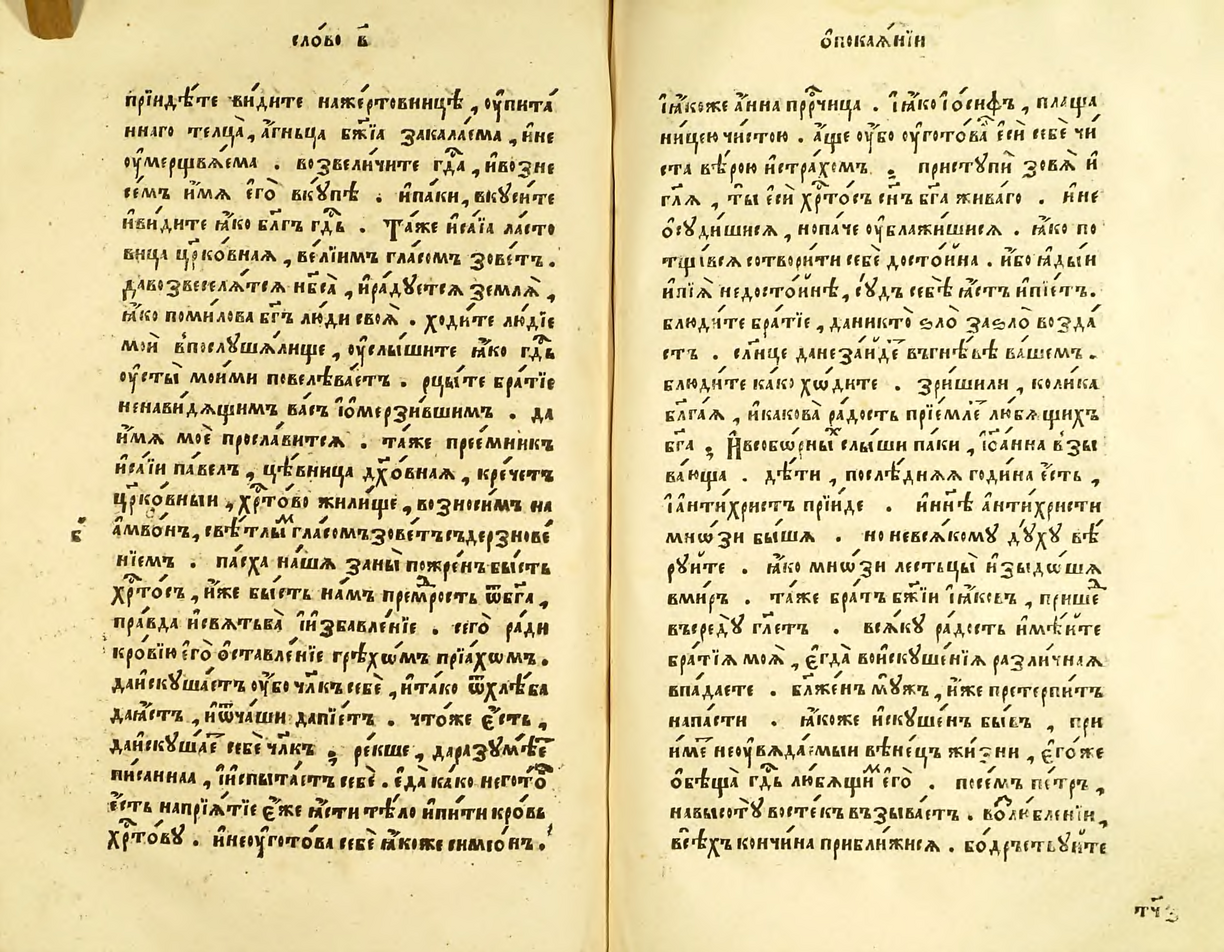 сло́во в҃
прїидѣ́те ви́дите нажертовницѣ̀, оу҆пита́
ннаго телца̀, а҆́гньца бж҃їа закала́ема, и҆не
оу҆мерщвѧ́ема . возвели́чите гдⷭ҇а, и҆возне
се́мъ и҆́мѧ є҆го̀ вкꙋ́пѣ . и҆па́ки, вкꙋси́те
и҆ви́дите ꙗ҆́ко бл҃гъ гдⷭ҇ь . Та́же и҆са́їа ла́сто
вица црк҃о́внаѧ, ве́лїимъ гла́сомъ зове́тъ .
давозвеселѧ́тсѧ нб҃са̀, и҆ра́дꙋетсѧ землѧ̀,
ꙗ҆́ко поми́лова бг҃ъ лю́ди своѧ̀ . ходи́те лю́дїе
моѝ впослꙋ́шѧлище, оу҆слы́шите ꙗ҆́ко гдⷭ҇ь
оу҆сты̀ мои́ми повелѣва́етъ . рцы́те бра́тїе
ненави́дѧщимъ ва́съ і҆ѡмерзи́вшимъ . да
и҆́мѧ моѐ просла́витсѧ . та́же прее́мникъ
и҆са́їи па́велъ, цѣ́вница дх҃о́внаѧ, кре́четъ
црк҃о́вныи, хрⷭ҇то́во жили́ще, возноси́мъ на
а҆мво́нъ, свѣ́тлыⷨ гла́сомъ зове́тъ съдерзнове́
нїемъ . па́сха на́шѧ заны̀ пожре́нъ бы́сть
хрⷭ҇то́съ, и҆́же бы́сть на́мъ премⷣрость ѿбг҃а,
пра́вда и҆свѧтьба̀ і҆и҆збавле́нїе . сего̀ ра́ди
кро́вїю є҆го̀ ѡ҆ставле́нїе грѣхѡ́мъ прїѧ́хомъ .
даи҆скꙋша́етъ оу҆́бо чл҃къ себѐ, и҆та́ко ѿхлѣ́ба
даꙗ҆́стъ, и҆ѿча́ши дапїе́тъ . что́же є҆́сть,
даи҆скꙋша́еⷮ себѐ чл҃къ ; ре́кше, даразꙋмѣ́еⷮ
пи́саннаа, і҆и҆спыта́етъ себѐ . є҆да̀ ка́ко него́тоⷡ
є҆́сть напрїѧ́тїе є҆́же ꙗ҆́сти тѣ́ло и҆пи́ти кро́вь
хрⷭ҇то́вꙋ . и҆неоу҆гото́ва себѐ ꙗ҆́коже симео́нъ .
в҃
ѡ҆покаѧ́нїи
і҆ꙗ҆́коже а҆́нна прⷪ҇рчица . і҆ꙗ҆́ко і҆ѡ́сифъ, плаща
ни́цею чи́стою . а҆́ще оу҆́бо оу҆гото́ваⷧ є҆сѝ себѐ чи́
ста вѣ́рою и҆стра́хомъ . пристꙋпѝ зовѧ̀ и҆
гл҃ѧ, ты̀ є҆сѝ хрⷭ҇то́съ сн҃ъ бг҃а жива́го . и҆не
ѡ҆сꙋ́дишисѧ, нопа́че оу҆блажи́шисѧ . ꙗ҆́ко по
тща́всѧ сотвори́ти себѐ досто́йна . и҆́бо ꙗ҆ды́и
и҆пїѧ̀ недосто́йнѣ, сꙋ́дъ себѣ̀ ꙗ҆́стъ и҆пїе́тъ .
блюди́те бра́тїе, даникто̀ ѕло̀ заѕло̀ возда́
стъ . сл҃нце данеза́йдеⷮ въгнѣ́вѣ ва́шемъ .
блюди́те ка́ко хѡ́дите . зри́шили, коли́ка
бл҃га́ѧ, и҆какова̀ ра́дость прїе́млеⷮ лю́бѧщихъ
бг҃а ; И҆всеобѡ́рныⷯ слы́ши па́ки, і҆ѡ҆а́нна взы
ва́юща . дѣ́ти, послѣ́днѧѧ годи́на є҆́сть,
і҆а҆нти́христъ прїи́де . и҆нн҃ѣ а҆нти́христи
мно́зи бы́шѧ . но невсѧ́комꙋ дꙋ́хꙋ вѣ́
рꙋйте . ꙗ҆́ко мно́зи лестьцы̀ и҆зыдо́шѧ
вми́ръ . та́же бра́тъ бж҃їи і҆ꙗ҆́ковъ, прише́ⷣ
въсредꙋ̀ гл҃етъ . всѧ́кꙋ ра́дость и҆мѣ́йте
бра́тїѧ моѧ̀, є҆гда̀ вои҆скꙋше́нїѧ разли́чнаѧ
впада́ете . бл҃же́нъ мꙋ́жъ, и҆́же претерпи́тъ
напа́сти . ꙗ҆́коже и҆скꙋше́нъ бы́въ, при
и҆́меⷮ неоу҆вѧда́емыи вѣне́цъ жи́зни, є҆го́же
ѡ҆бѣща̀ гдⷭ҇ь лю́бѧщиⷨ є҆го̀ . посе́мъ пе́тръ,
навысотꙋ̀ восте́къ възыва́етъ . возлю́бленїи,
всѣ́хъ кончи́на прибли́жисѧ . бо́дрьствꙋйте